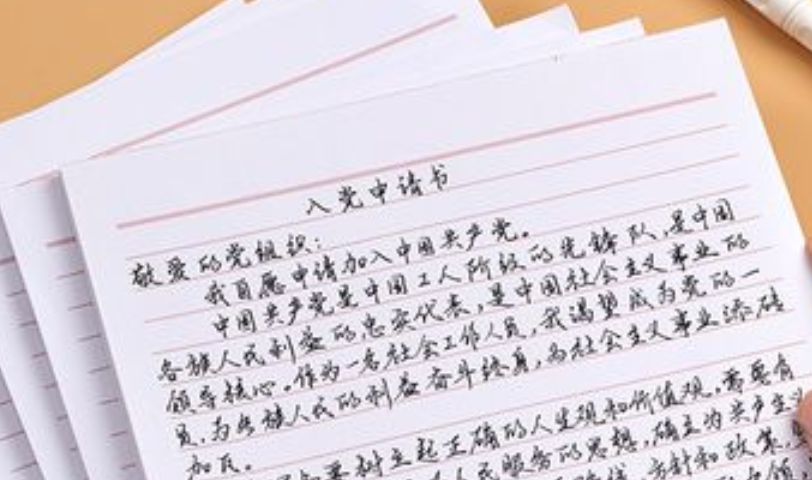 入党申请书
敬爱的党组织:
我自愿申请加入中国共产党。
中国共产党是中国工人阶级的先锋队,是中国
各族人民利益的忠实代表,是中国社会主义事业的
领导核心。作为一名社会工作人员,我渴望成为党的一
员,为各族人民的利益奋斗终身,为社会主义事业添砖
加瓦。
树立起正确的人生观和价值观。需要有
人民服务的思想,确立为共产主义
方针和政策